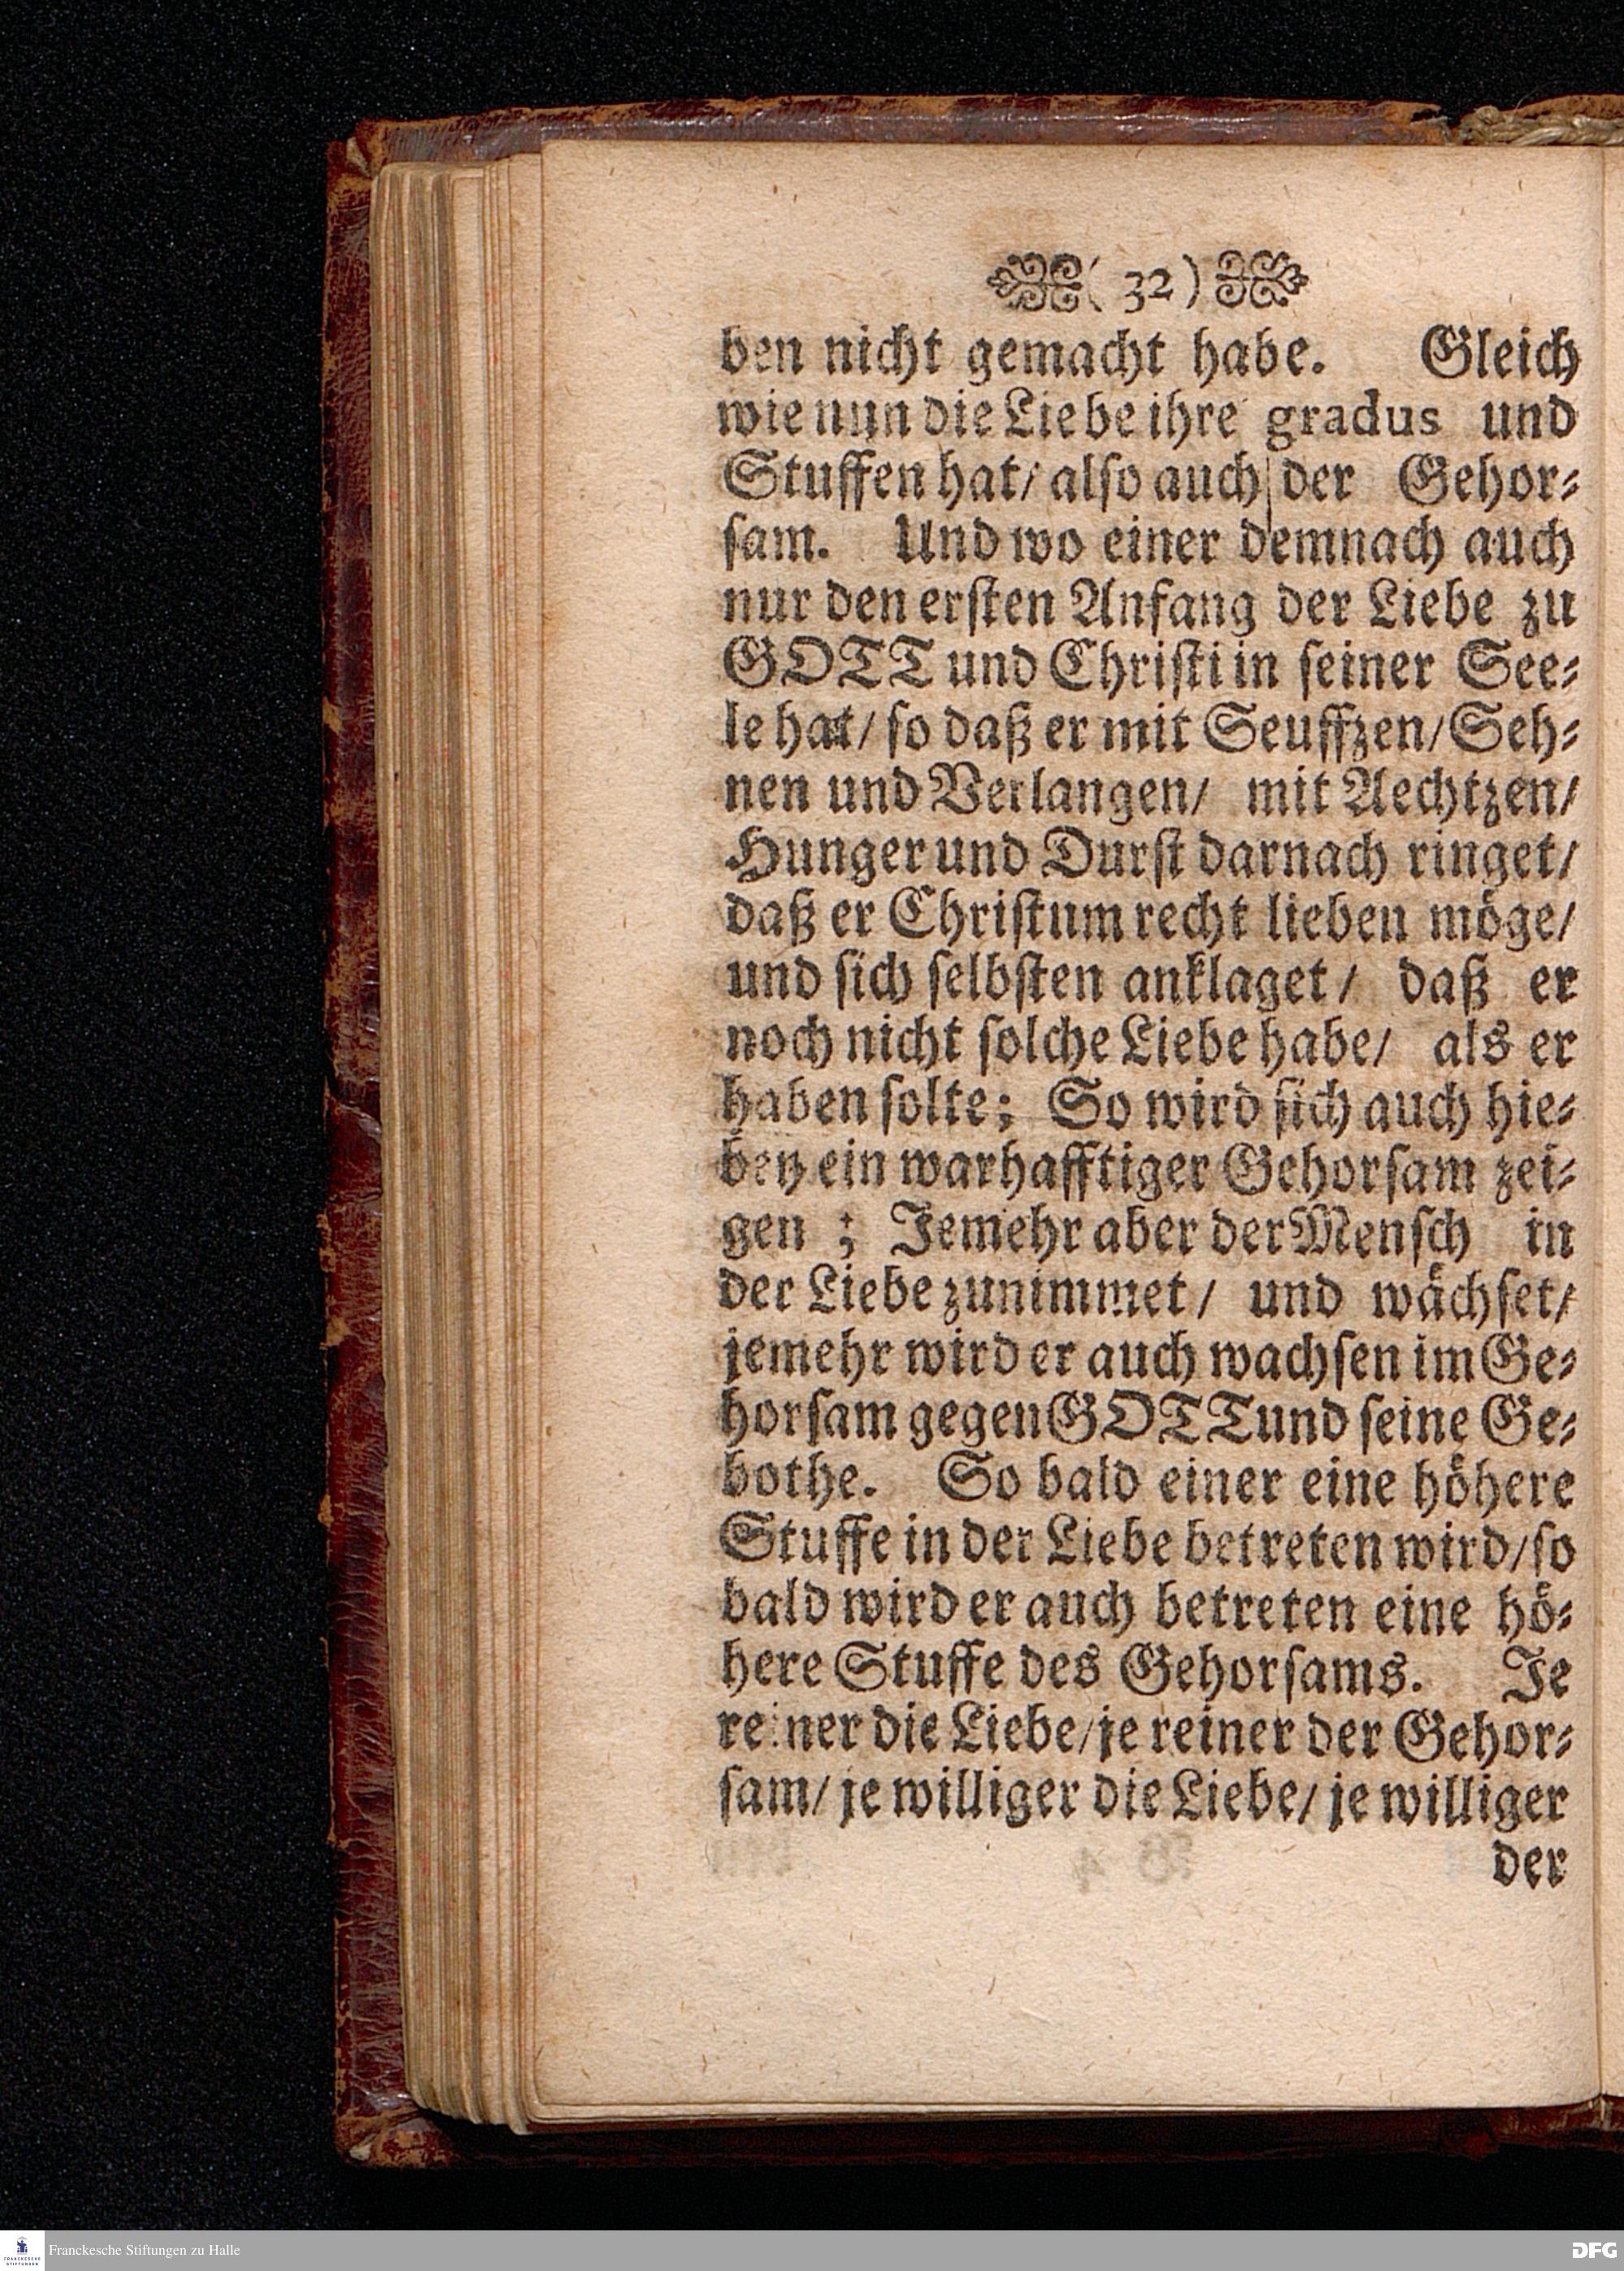 ( 32 )
ben nicht gemacht habe. Gleich
wie nun die Liebe ihre gradus und
Stuffen hat/ also auch der Gehor⸗
sam. Und wo einer demnach auch
nur den ersten Anfang der Liebe zu
GOTT und Christi in seiner See⸗
le hat/ so daß er mit Seuffzen/ Seh⸗
nen und Verlangen/ mit Aechtzen/
Hunger und Durst darnach ringet/
daß er Christum recht lieben möge/
und sich selbsten anklaget/ daß er
noch nicht solche Liebe habe/ als er
haben solte; So wird sich auch hie⸗
bey ein warhafftiger Gehorsam zei⸗
gen ; Jemehr aber der Mensch in
der Liebe zunimmet/ und wächset/
jemehr wird er auch wachsen im Ge⸗
horsam gegen GOTT und seine Ge⸗
bothe. So bald einer eine höhere
Stuffe in der Liebe betreten wird/ so
bald wird er auch betreten eine hö⸗
here Stuffe des Gehorsams. Je
reiner die Liebe/ je reiner der Gehor⸗
sam/ je williger die Liebe/ je williger
der
Franckesche Stiftungen zu Halle
DFG